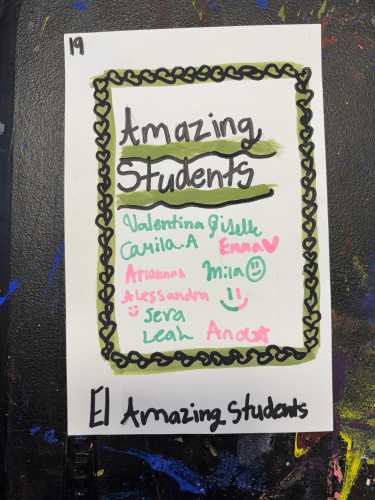 19
Amazing
Students
Valentina Giselle
Camila.A Emma
Ariannah Mila
Alessandra
Jera
Leah Anda
El Amazing Students